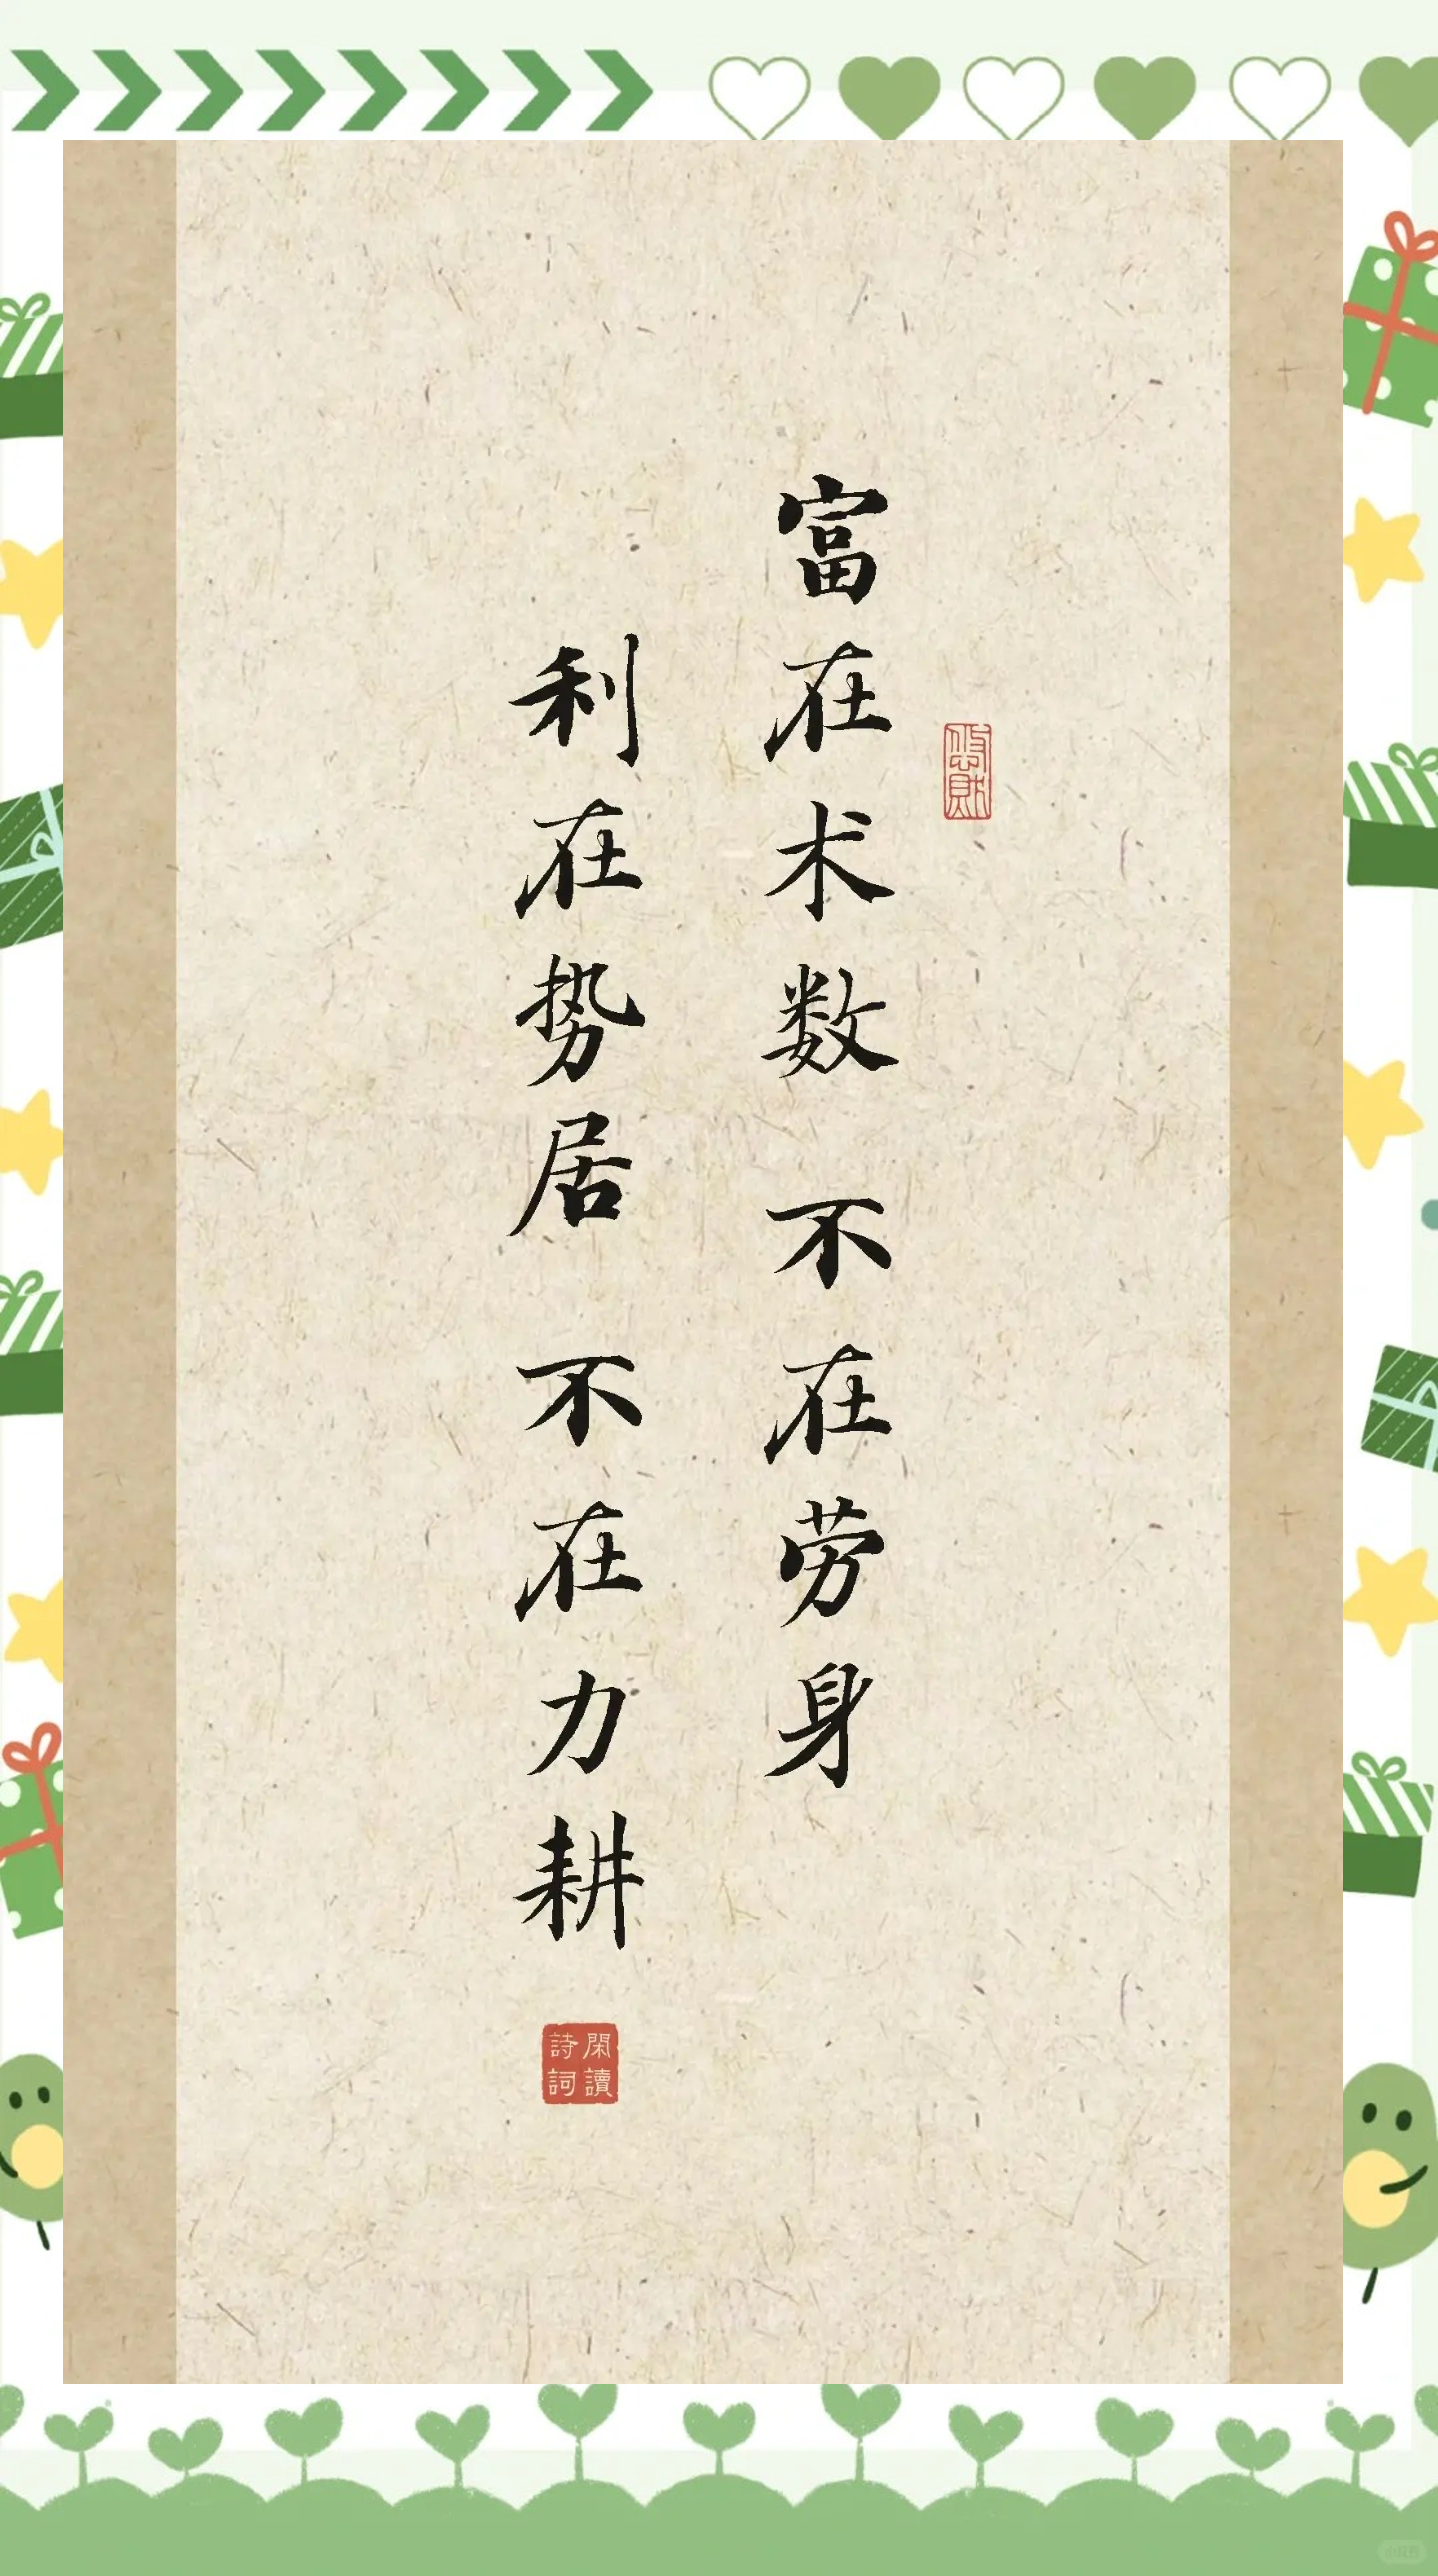 富在术数 不在劳身
利在势居 不在力耕
閑讀
詩詞